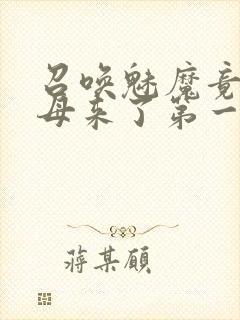 召唤魅魔竟
母来了第一
蒋某顾